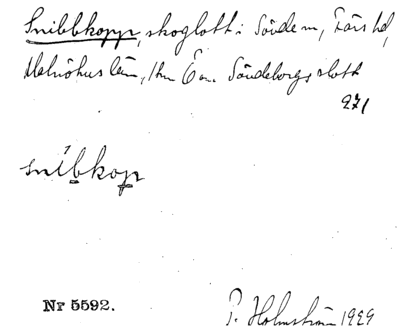 Snibbkopp, skoglott i Sövde sn, Färs hd,
Malmöhus län, 1 km Ö om Sövdeborgs slott
271
snibkop
Nr 5592.
P. Holmström 1929